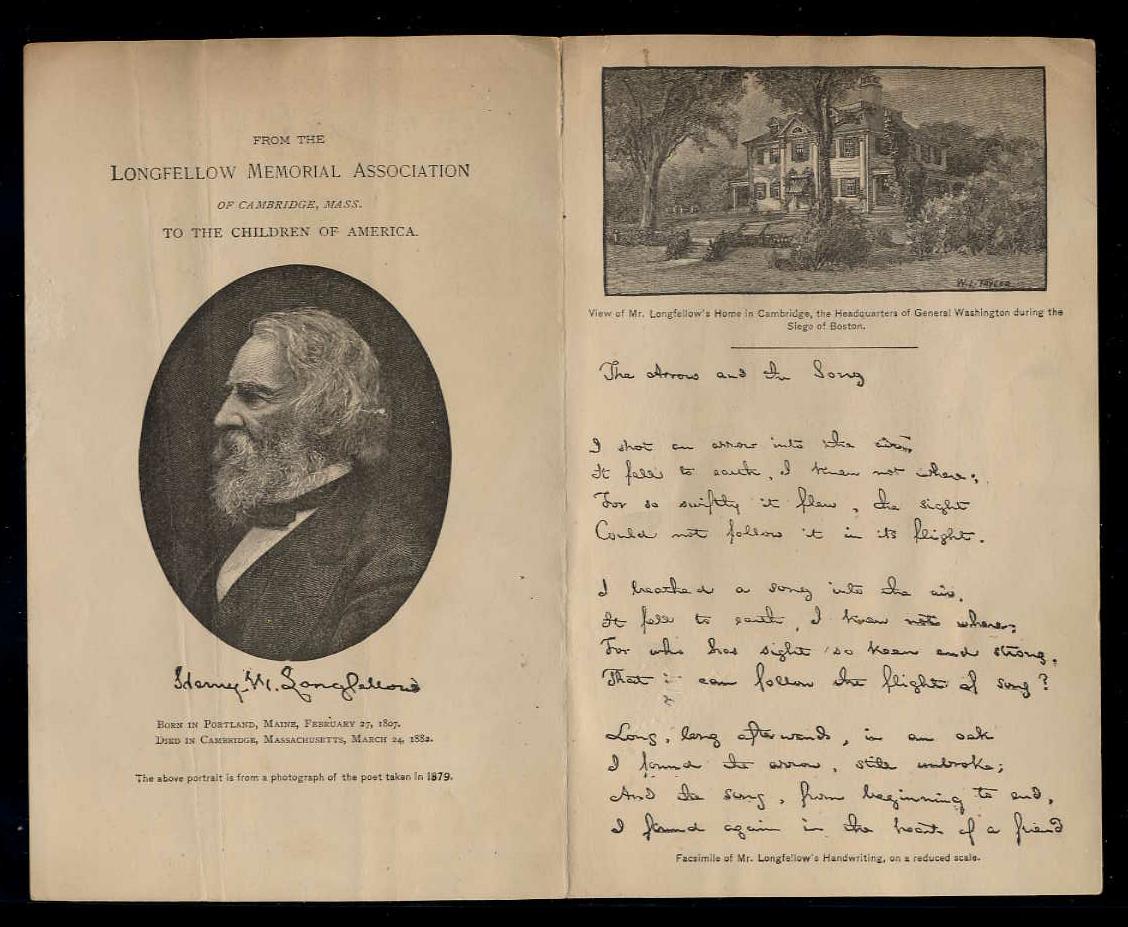 FROM THE
LONGFELLOW MEMORIAL ASSOCIATION
OF CAMBRIDGE, MASS.
TO THE CHILDREN OF AMERICA.
Henry W. Longfellow
BORN IN PORTLAND, MAINE, FEBRUARY 27, 1807.
DIED IN CAMBRIDGE, MASSACHUSETTS, MARCH 24, 1882.
The above portrait is from a photograph of the poet taken in 1879.
W. L. TAYLOR
View of Mr. Longfellow's Home in Cambridge, the Headquarters of General Washington during the
Siege of Boston.
The Arrow and the Song
I shot an arrow into the air,
It fell to earth, I knew not where;
For so swiftly it flew, the sight
Could not follow it in its flight.
I breathed a song into the air,
It fell to earth, I knew not where;
For who has sight so keen and strong,
That it can follow the flight of song?
Long, long afterwards, in an oak
I found the arrow, still unbroke;
And the song, from beginning to end,
I found again in the heart of a friend
Facsimile of Mr. Longfellow's Handwriting, on a reduced scale.